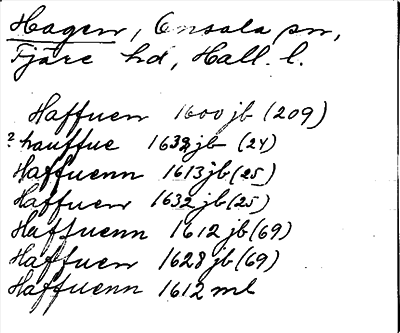 Hagen, Onsala sn,
Fjäre hd, Hall. l.
Haffuen 1600 jb (209)
? hauffue 1632 jb (24)
Haffuenn 1613 jb (25)
Haffuen 1632 jb (25)
Haffuenn 1612 jb (69)
Haffuen 1628 jb (69)
Haffuenn 1612 ml